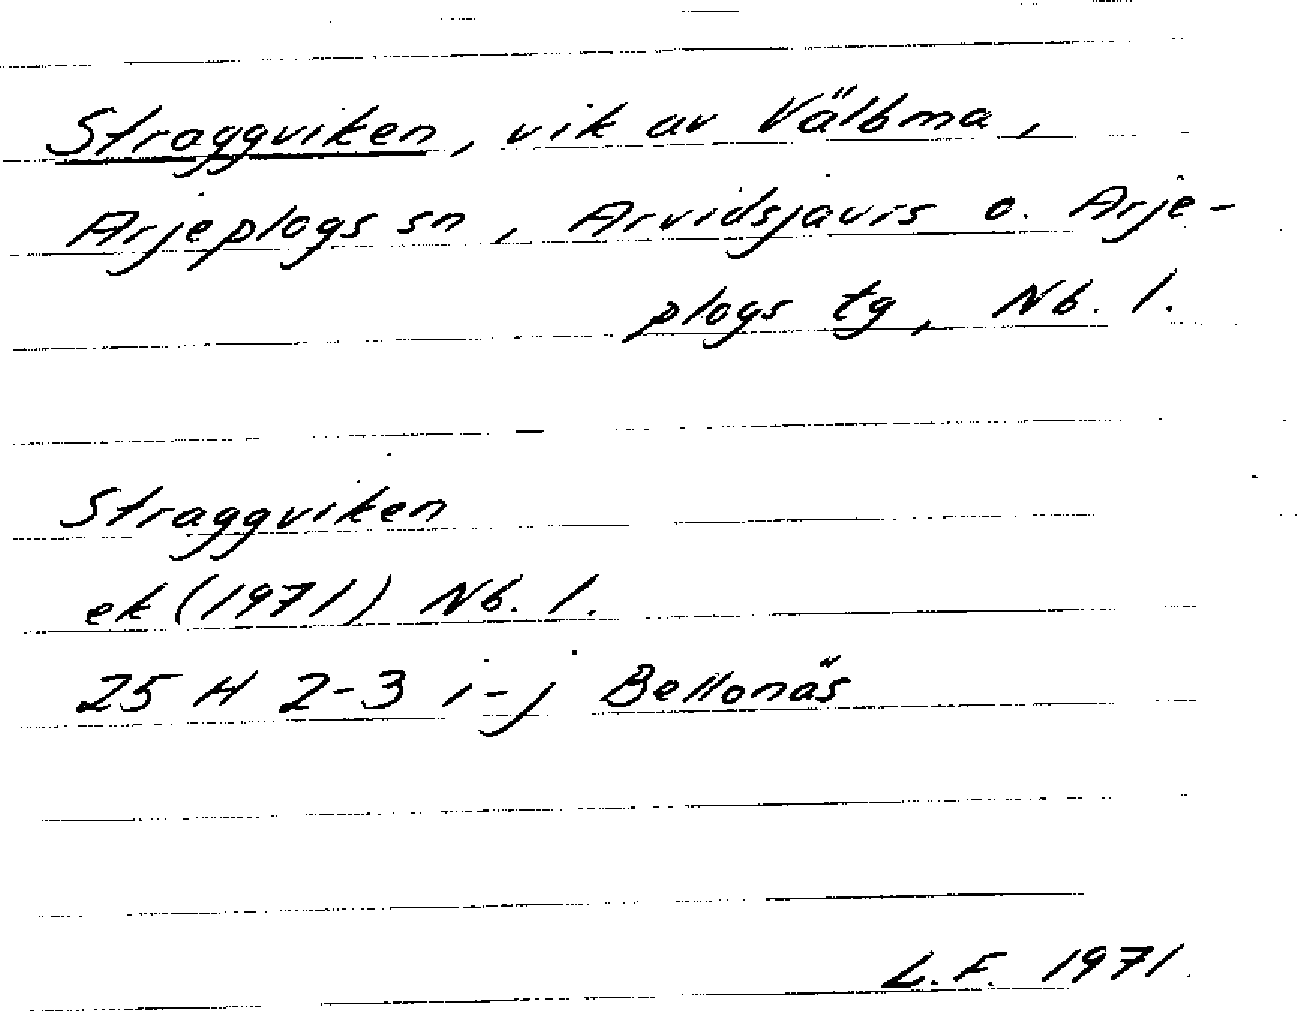 Straggviken, vik av Välbma,
Arjeplogs sn, Arvidsjaurs o. Arje-
plogs tg, Nb. l.
Straggviken
ek (1971) Nb. l.
25 H 2-3 i-j Bellonäs
L.F. 1971